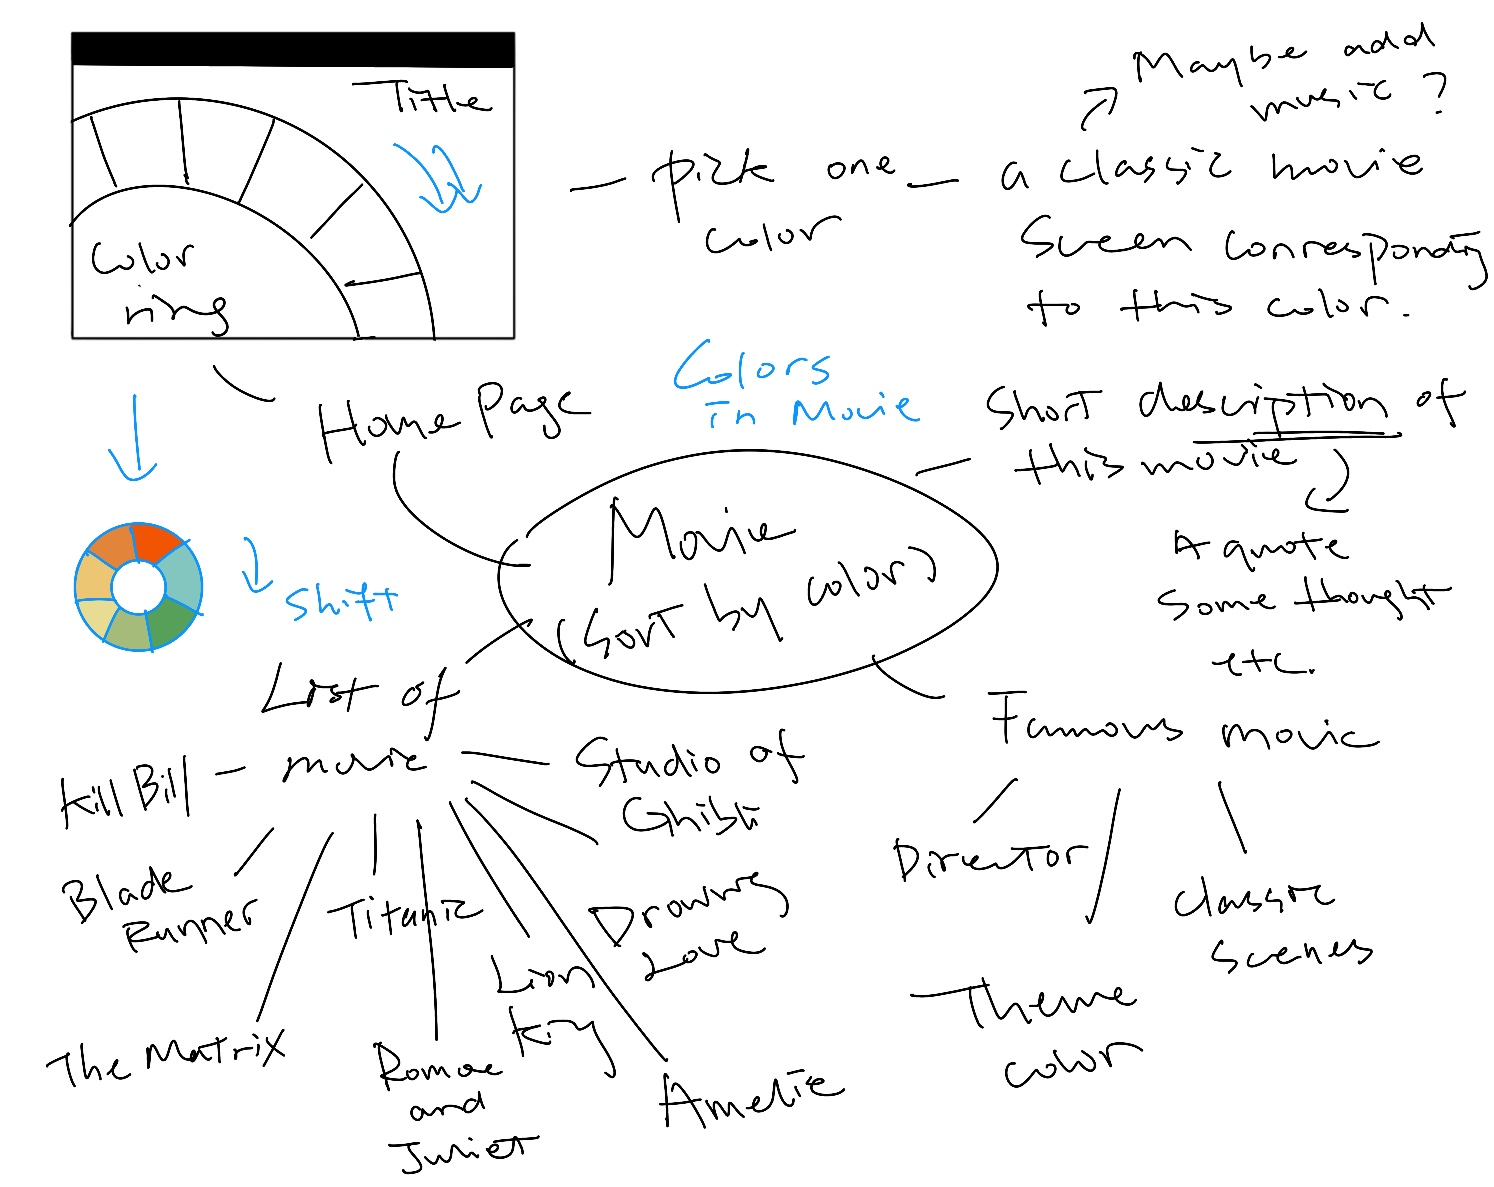 Title
Color
ring
Home Page
pick one
color
Maybe add
music?
a classic movie
Screen corresponding
to this color.
Colors
in Movie
Short description of
this movie
A quote
Some thought
etc.
Movie
(Sort by color)
Shift
List of
movie
Kill Bill
Blade
Runner
The Matrix
Titanic
Romoe
and
Juliet
Lion
King
Amelie
Drowning
Love
Studio of
Ghibli
Famous movie
Director
Theme
color
Classic
Scenes